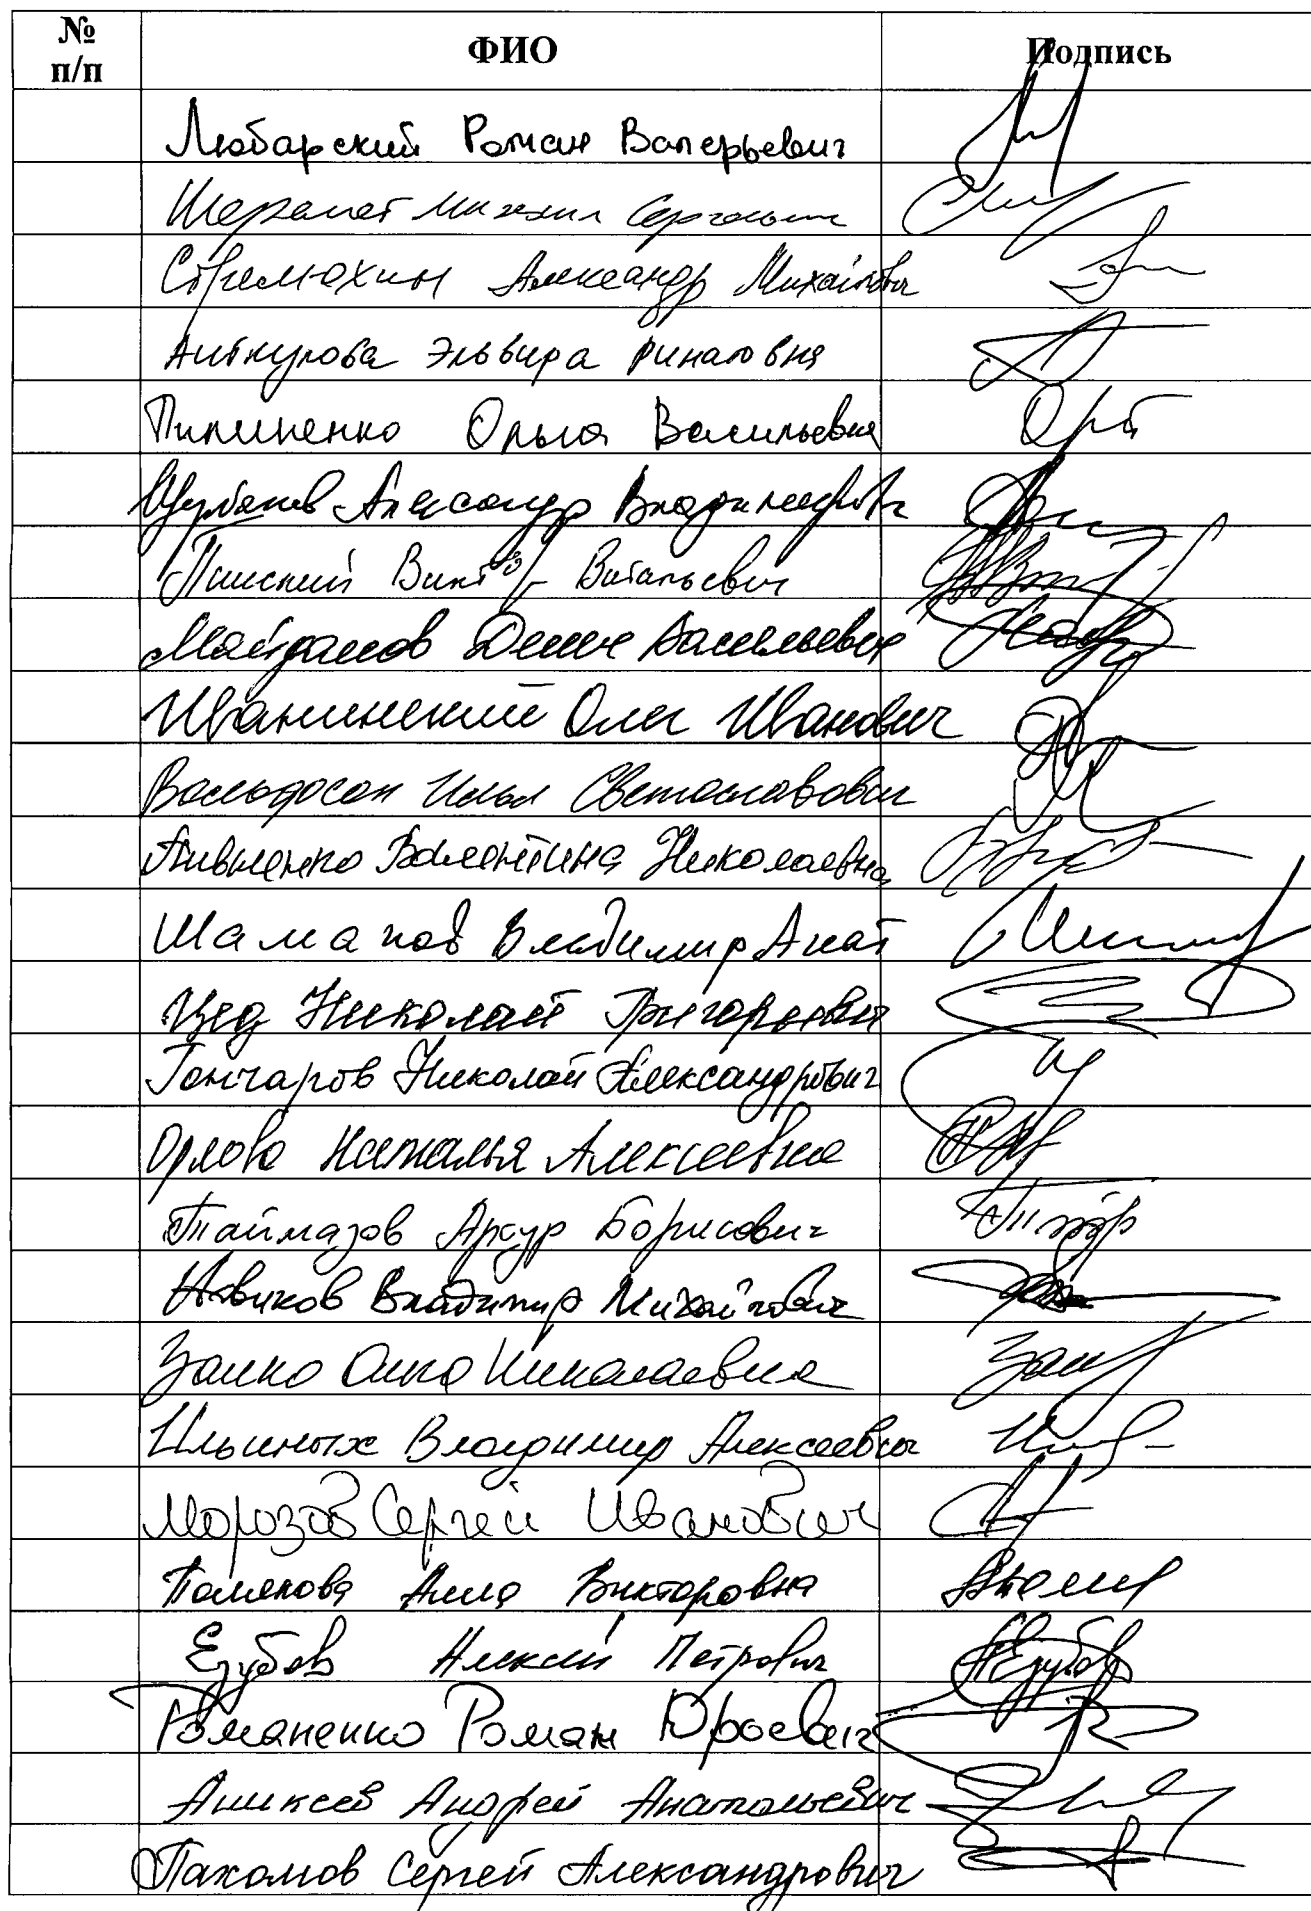 № п/п ФИО Подпись
Любарский Роман Валерьевич
Шеремет Михаил Сергеевич
Стрелюхин Александр Михайлович
Аиткулова Эльвира Ринатовна
Пилипенко Ольга Васильевна
Щербаков Александр Владимирович
Пинский Виктор Витальевич
Майданов Денис Васильевич
Иванинский Олег Иванович
Вольфсон Илья Светославович
Пивненко Валентина Николаевна
Шаманов Владимир Анат
Цед Николай Григорьевич
Гончаров Николай Александрович
Орлова Наталья Алексеевна
Таймазов Артур Борисович
Новиков Владимир Михайлович
Занко Ольга Николаевна
Ильиных Владимир Алексеевич
Морозов Сергей Иванович
Полякова Алла Викторовна
Езубов Алексей Петрович
Романенко Роман Юрьевич
Алексеев Андрей Анатольевич
Пахомов Сергей Александрович